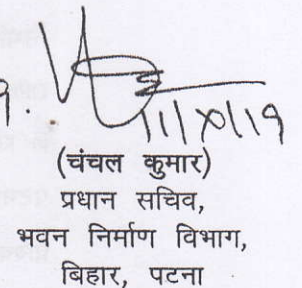 11/XI/19
(चंचल कुमार)
प्रधान सचिव,
भवन निर्माण विभाग,
बिहार, पटना